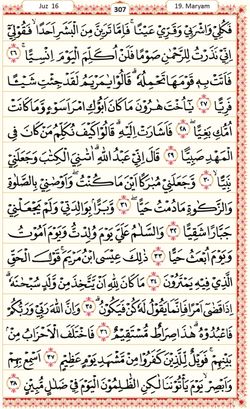 Juz 16 307 19. Maryam
فَكُلِي وَاشْرَبِي وَقَرِّي عَيْنًا ۚ فَإِمَّا تَرَيِنَّ مِنَ الْبَشَرِ أَحَدًا ۙ فَقُولِي
إِنِّي نَذَرْتُ لِلرَّحْمٰنِ صَوْمًا فَلَنْ أُكَلِّمَ الْيَوْمَ إِنْسِيًّا ۚ ٢٦
فَأَتَتْ بِهِ قَوْمَهَا تَحْمِلُهُ ۖ قَالُوا يَا مَرْيَمُ لَقَدْ جِئْتِ شَيْئًا
فَرِيًّا ٢٧ يَا أُخْتَ هٰرُونَ مَا كَانَ أَبُوكِ امْرَأَ سَوْءٍ وَمَا كَانَتْ
أُمُّكِ بَغِيًّا ۖ ٢٨ فَأَشَارَتْ إِلَيْهِ ۖ قَالُوا كَيْفَ نُكَلِّمُ مَنْ كَانَ فِي
الْمَهْدِ صَبِيًّا ٢٩ قَالَ إِنِّي عَبْدُ اللّٰهِ ۗ آتٰنِيَ الْكِتٰبَ وَجَعَلَنِي
نَبِيًّا ۙ ٣٠ وَجَعَلَنِي مُبٰرَكًا أَيْنَ مَا كُنْتُ ۖ وَأَوْصٰنِي بِالصَّلٰوةِ
وَالزَّكٰوةِ مَا دُمْتُ حَيًّا ۖ ٣١ وَبَرًّا بِوَالِدَتِي وَلَمْ يَجْعَلْنِي
جَبَّارًا شَقِيًّا ٣٢ وَالسَّلٰمُ عَلَيَّ يَوْمَ وُلِدْتُ وَيَوْمَ أَمُوتُ
وَيَوْمَ أُبْعَثُ حَيًّا ٣٣ ذٰلِكَ عِيسَى ابْنُ مَرْيَمَ ۚ قَوْلَ الْحَقِّ
الَّذِي فِيهِ يَمْتَرُونَ ٣٤ مَا كَانَ لِلّٰهِ أَنْ يَتَّخِذَ مِنْ وَلَدٍ ۙ سُبْحٰنَهُ ۚ
إِذَا قَضٰى أَمْرًا فَإِنَّمَا يَقُولُ لَهُ كُنْ فَيَكُونُ ۗ ٣٥ وَإِنَّ اللّٰهَ رَبِّي وَرَبُّكُمْ
فَاعْبُدُوهُ ۚ هٰذَا صِرٰطٌ مُّسْتَقِيمٌ ٣٦ فَاخْتَلَفَ الْأَحْزَابُ مِنْ
بَيْنِهِمْ ۚ فَوَيْلٌ لِّلَّذِينَ كَفَرُوا مِنْ مَّشْهَدِ يَوْمٍ عَظِيمٍ ٣٧ أَسْمِعْ بِهِمْ
وَأَبْصِرْ ۙ يَوْمَ يَأْتُونَنَا لٰكِنِ الظّٰلِمُونَ الْيَوْمَ فِي ضَلٰلٍ مُّبِينٍ ٣٨